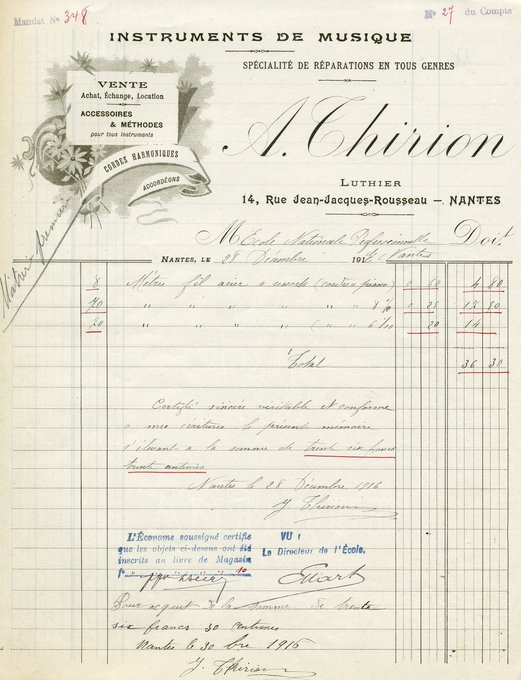 Mandat Nº 348
Nº 27 du Compte
INSTRUMENTS DE MUSIQUE
SPÉCIALITÉ DE RÉPARATIONS EN TOUS GENRES
VENTE
Achat, Échange, Location
ACCESSOIRES
& MÉTHODES
pour tous Instruments
CORDES HARMONIQUES
ACCORDÉONS
A. Thirion
LUTHIER
14, Rue Jean-Jacques-Rousseau — NANTES
M Ecole Nationale Professionnelle Doit
NANTES, LE 28 Décembre 1916 Nantes
Matière première
8 Mètres fil acier à ressorts 0 60 4 80
70 " " " " " 0 25 17 50
70 " " " " ( " 6/10 20 14
Total 36 30
Certifié sincère véritable et conforme
à mes écritures le présent mémoire
s'élevant à la somme de trente six francs
trente centimes
Nantes le 28 Décembre 1916
J. Thirion
L'Économe soussigné certifie
que les objets ci-dessus ont été
inscrits au livre de Magasin
fº 10
VU :
Le Directeur de l'École,
Pour acquit de la somme de trente
six francs 30 centimes
Nantes le 30 bre 1916
J. Thirion